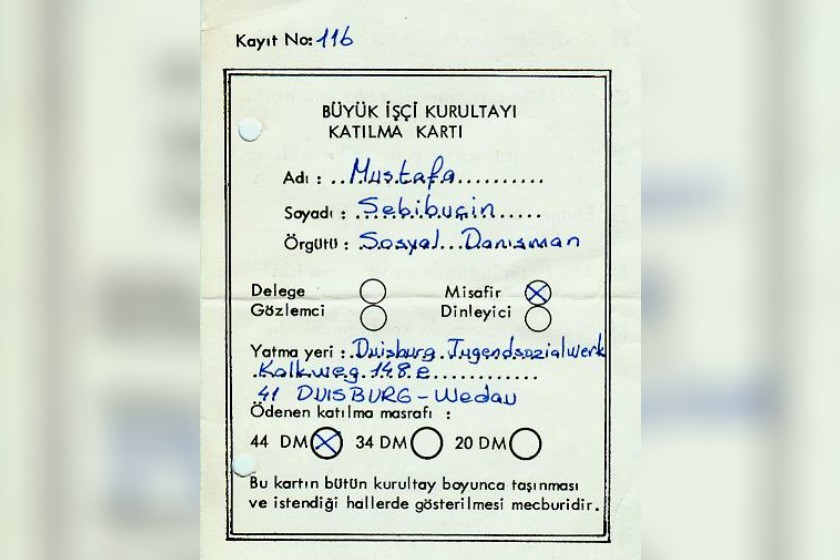 Kayıt No: 116
BÜYÜK İŞÇİ KURULTAYI
KATILMA KARTI
Adı : Mustafa
Soyadı : Şebibuçin
Örgütü : Sosyal Danışman
Delege Misafir
Gözlemci Dinleyici
Yatma yeri : Duisburg Jugendsozialwerk
Kalkweg 148 e
41 DUISBURG - Wedau
Ödenen katılma masrafı :
44 DM 34 DM 20 DM
Bu kartın bütün kurultay boyunca taşınması
ve istendiği hallerde gösterilmesi mecburidir.